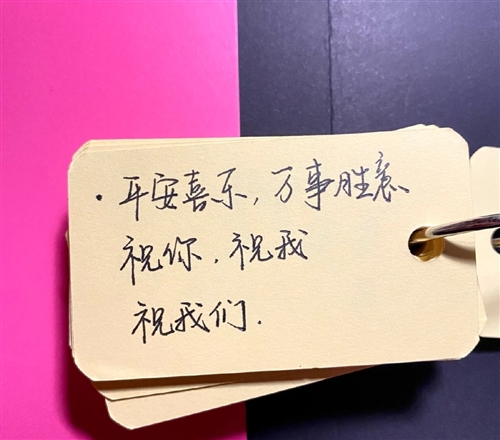 ·平安喜乐,万事胜意
祝你,祝我
祝我们.